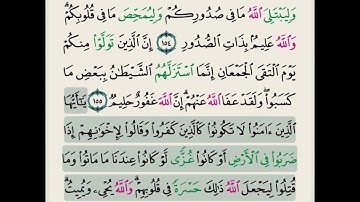 وَلِيَبْتَلِيَ ٱللَّهُ مَا فِى صُدُورِكُمْ وَلِيُمَحِّصَ مَا فِى قُلُوبِكُمْ ۗ
وَٱللَّهُ عَلِيمٌۢ بِذَاتِ ٱلصُّدُورِ ١٥٤ إِنَّ ٱلَّذِينَ تَوَلَّوْا۟ مِنكُمْ
يَوْمَ ٱلْتَقَى ٱلْجَمْعَانِ إِنَّمَا ٱسْتَزَلَّهُمُ ٱلشَّيْطَـٰنُ بِبَعْضِ مَا
كَسَبُوا۟ ۖ وَلَقَدْ عَفَا ٱللَّهُ عَنْهُمْ ۗ إِنَّ ٱللَّهَ غَفُورٌ حَلِيمٌ ١٥٥ يَـٰٓأَيُّهَا
ٱلَّذِينَ ءَامَنُوا۟ لَا تَكُونُوا۟ كَٱلَّذِينَ كَفَرُوا۟ وَقَالُوا۟ لِإِخْوَٰنِهِمْ إِذَا
ضَرَبُوا۟ فِى ٱلْأَرْضِ أَوْ كَانُوا۟ غُزًّى لَّوْ كَانُوا۟ عِندَنَا مَا مَاتُوا۟ وَمَا
قُتِلُوا۟ لِيَجْعَلَ ٱللَّهُ ذَٰلِكَ حَسْرَةً فِى قُلُوبِهِمْ ۗ وَٱللَّهُ يُحْىِۦ وَيُمِيتُ ۗ